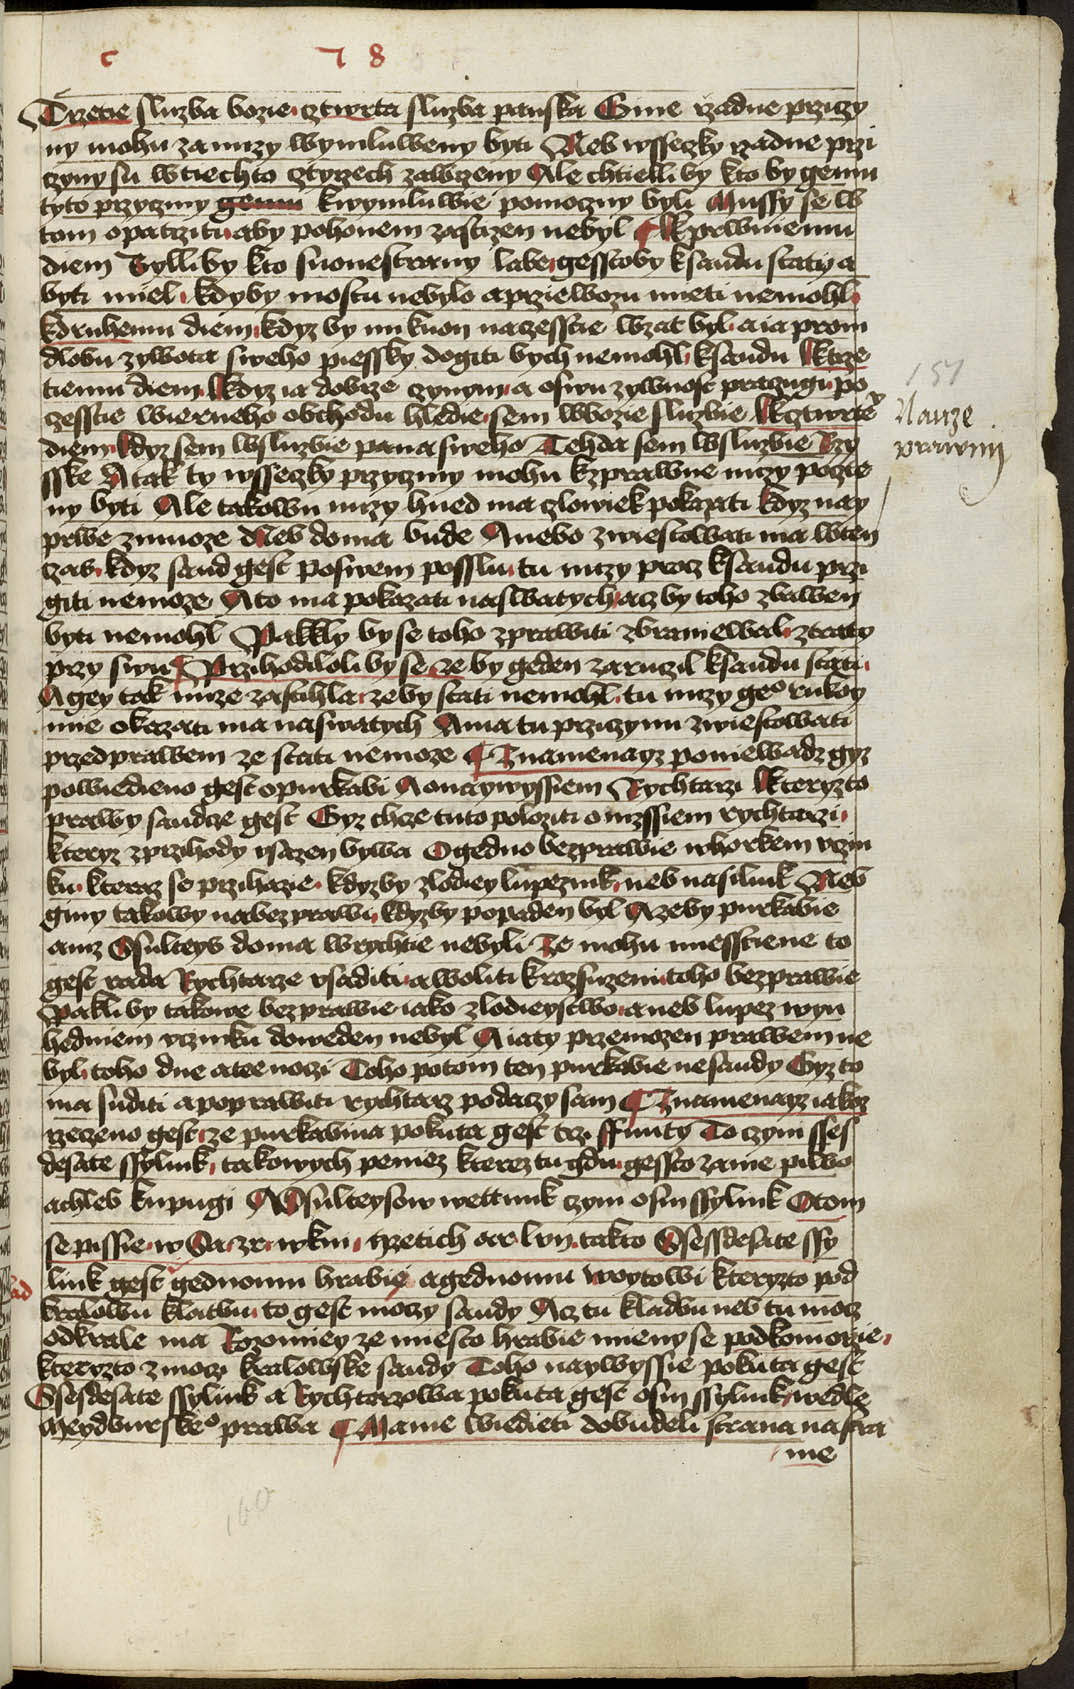 c 7 8
Trzetie sluzba bozie cztwrta sluzba panska Gine rzadne prziczy
ny mohu za nuzy wymluweny byti Neb wsseczky rzadne przi
czyny su wtiechto cztyrzech zawrzeny Ale chtielliby kto by gemu
tyto przyczyny gemu kwymluwie pomoczny byli Mussy se w
tom opatrziti aby pohonem zastizen nebyl Kprwniemu
diem Bylliby kto suonestrany labe gesstoby ksaudu staty a
byti miel kdyby mostu nebylo a przewozu mieti nemohl
kdruhemu diem kdyz by mi kuon naczesstie wzat byl a ia prom
dlobu zywota sweho piessky dogiti bych nemohl ksaudu Ktrze
tiemu diem kdyz ia dobrze czynym a oswu zywnost praczugi po
czesstie wierneho obchodu hledie sem wbozie sluzbie Kcztwrte
diem kdyz sem wsluzbie pana sweho Tehda sem wsluzbie Rzy
sske A tak ty wsseczky przyczyny mohu kzprawne nuzy pocztie
ny byti Ale takowu nuzy hned ma czlowiek pokazati kdyz nay
prwe zmuoze Neb doma bude Anebo zwiestowati ma wten
czas kdyz saud gest poswem posslu tu nuzy procz ksaudu przi
giti nemoze Ato ma pokazati naswatych acz by toho zbawen
byti nemohl Pakkly by se toho zprawiti zbraniewal ztraty
przy swu Przihodiloli by se ze by geden zaruczil ksaudu stati
A gey tak nuze zastihla zeby stati nemohl tu nuzy geo rukoy
mie okazati ma naswatych Ama tu przyczynu zwiestowati
przed prawem ze stati nemoze Znamenayz poniewadz gyz
powiedieno gest o purkrabi A o naywyssiem Rychtarzi Kteryzto
prawy saudcze gest Gyz chcze tuto poloziti o nizssiem rychtarzi
kteryz zprzihody vsazen bywa O gedno bezprawie whorkem vczin
ku kteraz se przihazie kdyzby zlodiey lupeznik neb nasilnik Neb
giny takowy nabezprawi kdyzby popaden byl Azeby purkabie
aniz Ssulteys doma wrychtie nebyli Ze mohu miesstiene to
gest rada Rychtarze vsaditi a woliti krozsuzeni toho bezprawie
Pakli by takowe bezprawie iako zlodieystwo aneb lupez wyn
hedniem vczinku doweden nebyl A iaty przemozen prawem ne
byl toho dne a tee noczi Toho potom ten purkabie nesaudy Gyz to
ma suditi a poprawiti rychtarz podaczy sam Znamenayz iakoz
rzeczeno gest ze purkabina pokuta gest trzi ffunty To czyni sses
desate ssylink takowych peniez kterez tu gdu gessto zanie piwo
a chleb kupugi A Ssulteysow wettunk czyni osm ssylink O tom
se pissie w Sa zr wkm trzetich lxiiii takto Ssessdesate ssy
link gest gednomu hrabie a gednomu woytowi kteryzto pod
kralowu klatbu to gest moczy saudy Acz tu kladbu neb tu mocz
odkrale ma Rozomiey ze miesto hrabie mieny se podkomorzie
kteryzto z moczi kralowske saudy Toho naywyssie pokuta gest
Ssesdesate ssylink a Rychtarzowa pokuta gest osm ssylink wedle
Meydburskeo prawa Mame wiedieti dobudeli strana na stra
nie
ad
151
Nauze
prawnij
160